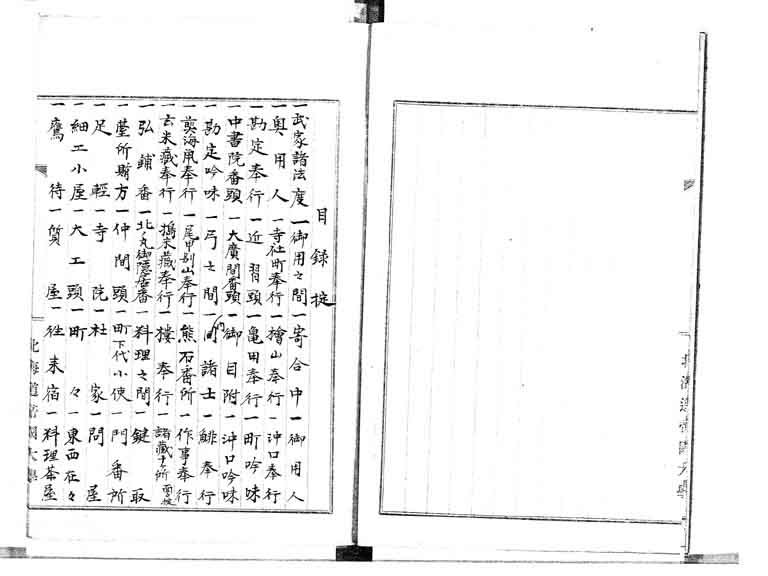 目録掟
一武家諸法度一御用之間一寄合中一御用人
一奥用人一寺社町奉行一檜山奉行一沖口奉行
一勘定奉行一近習頭一亀田奉行一町吟味
一中書院番頭一大廣間番頭一御目附一沖口吟味
一勘定吟味一弓之間一間諸士一鯡奉行
一煎海鼠奉行一尾甲別山奉行一熊石番所一作事奉行
一玄米藏奉行一搗米藏奉行一樓奉行一諸藏十ヶ所
一弘鋪番一北ノ丸御隠居番一料理之間一鍵取
一臺所賄方一仲間頭一町下代小使一門番所
一足輕一寺院一社家一問屋
一細工小屋一大工頭一町々一東西在々
一鷹待一質屋一往来宿一料理茶屋
北海道帝國大學
北海道帝國大學